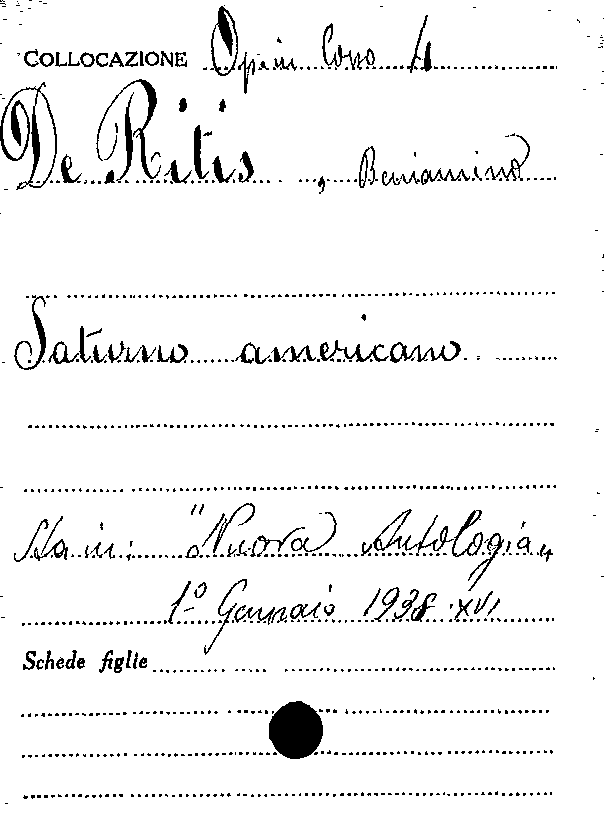 COLLOCAZIONE Op. in Corso 4
De Ritis, Beniamino
Saturno americano.
Sta in: "Nuova Antologia„
1º Gennaio 1938.XVI
Schede figlie